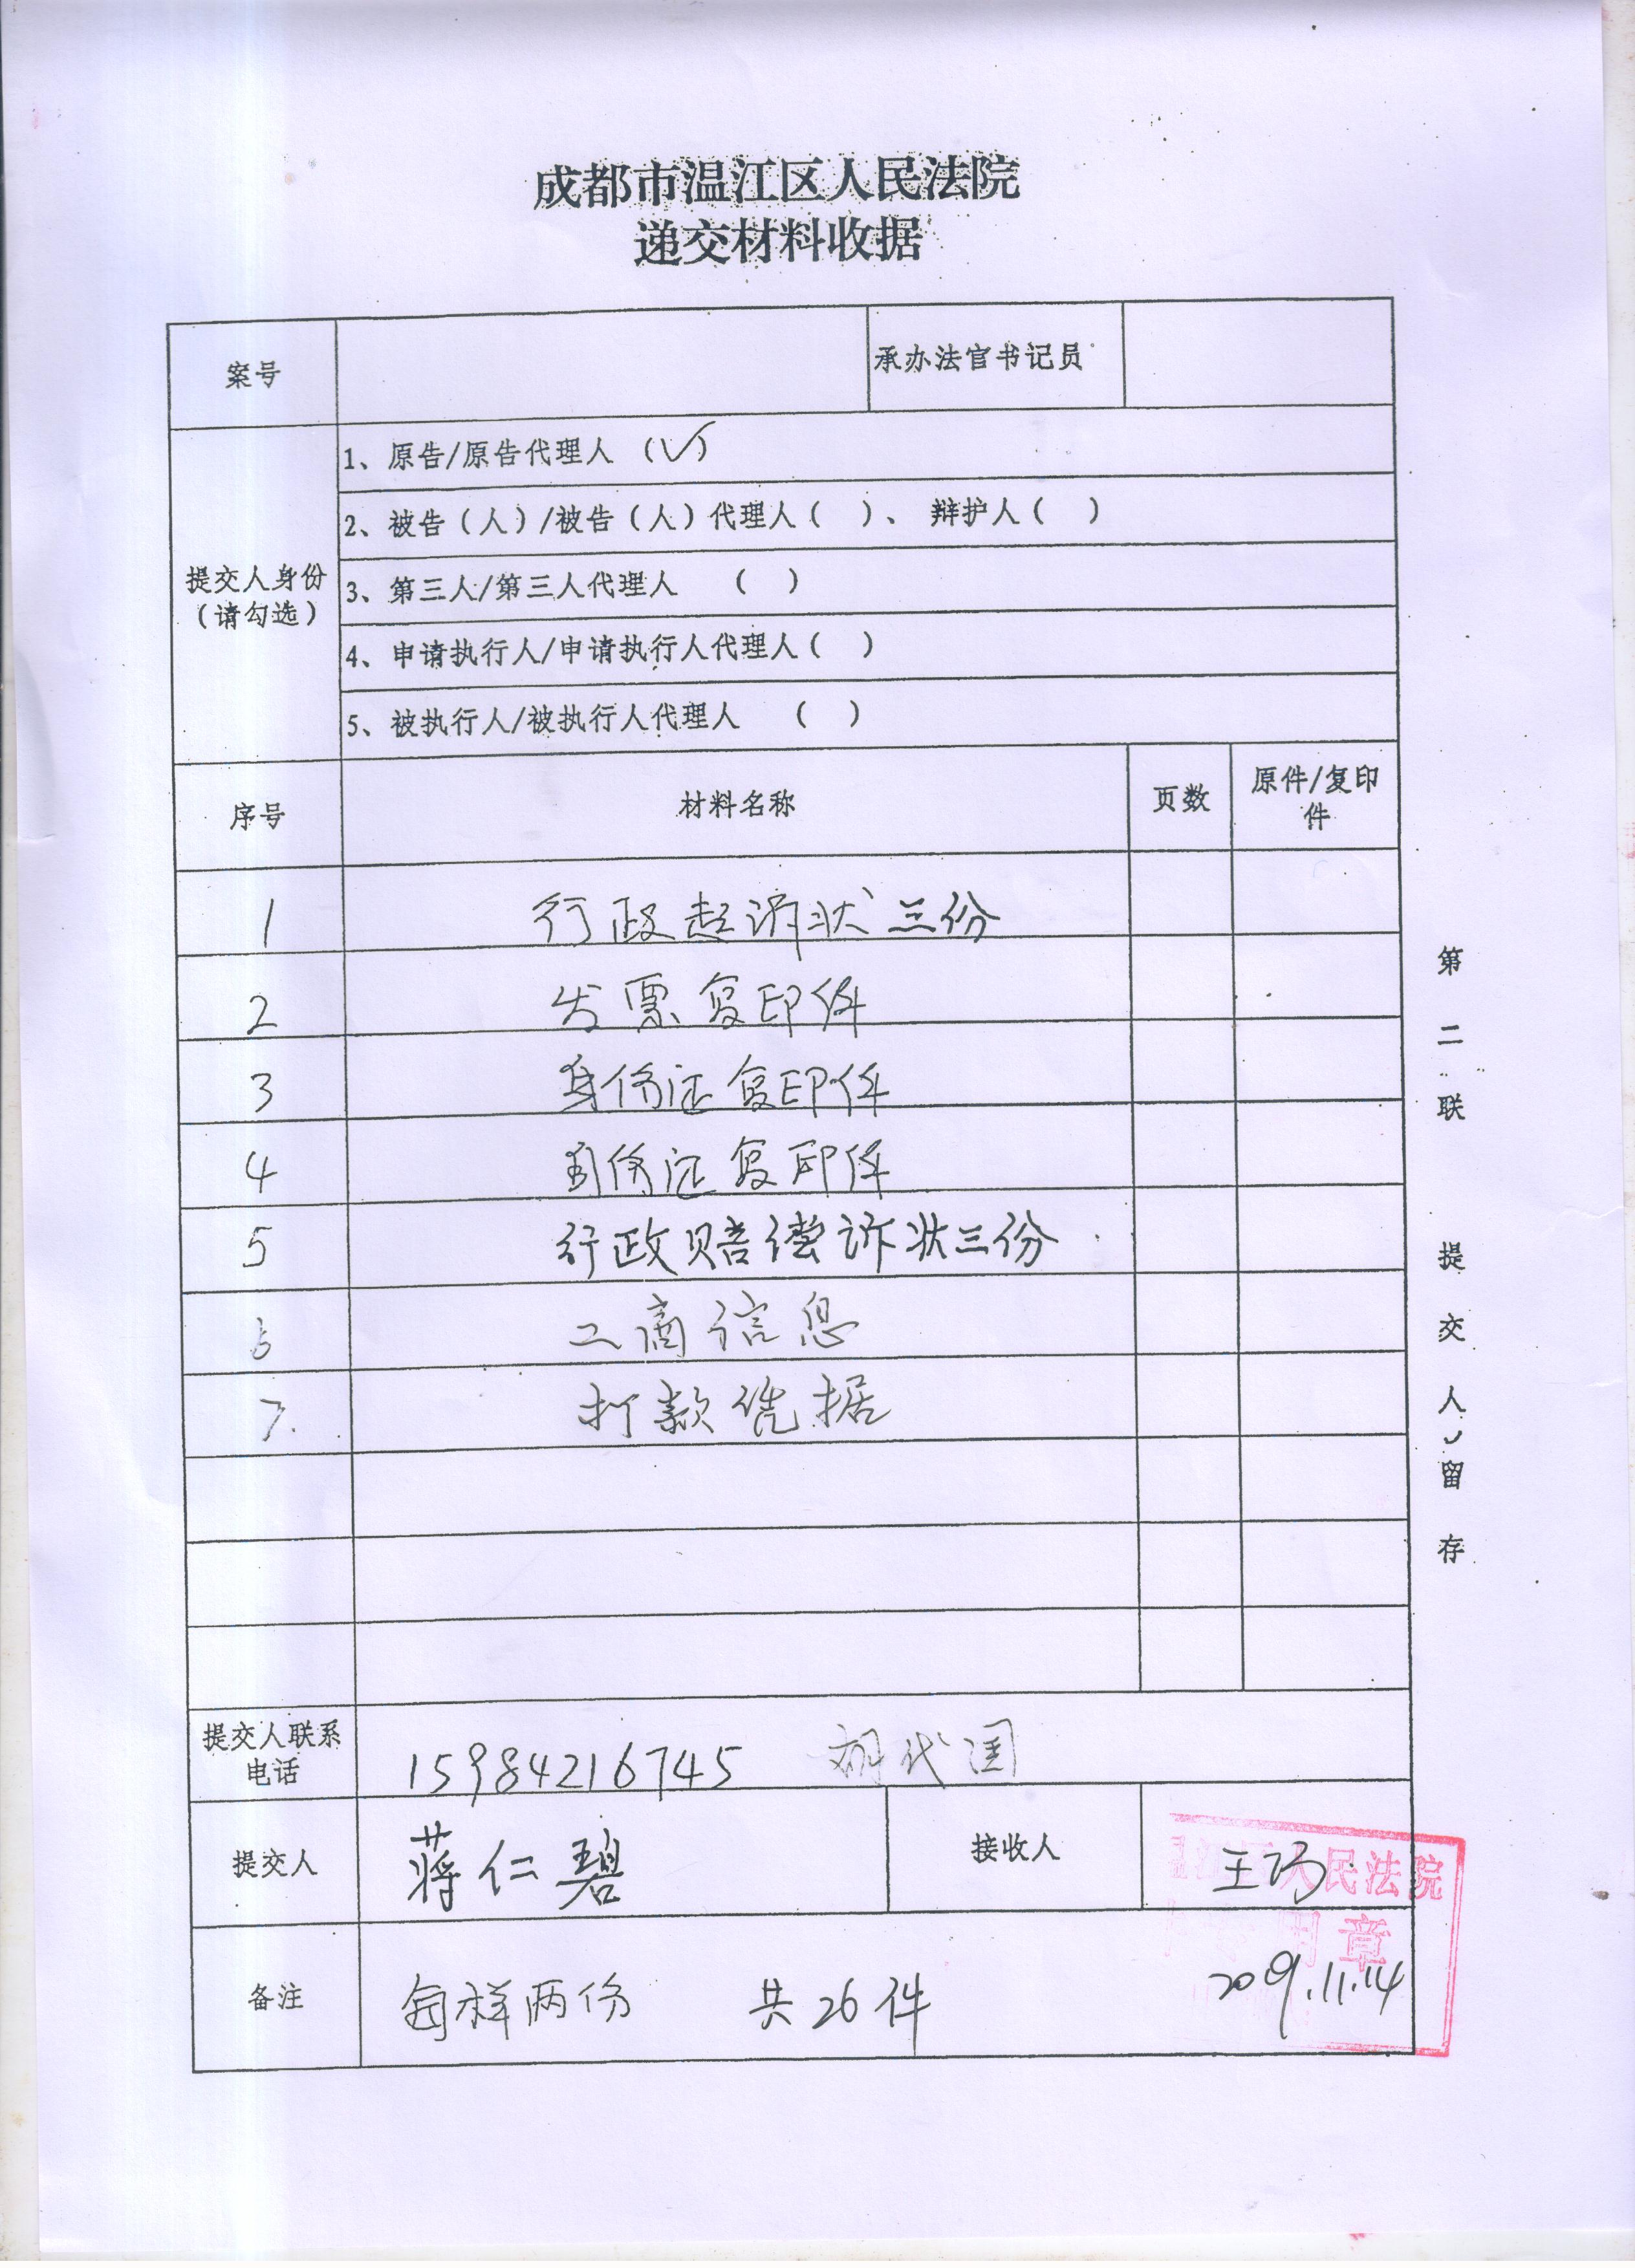 成都市温江区人民法院
递交材料收据
案号
承办法官书记员
提交人身份
（请勾选）
1、原告/原告代理人 （✓）
2、被告（人）/被告（人）代理人（ ）、 辩护人（ ）
3、第三人/第三人代理人 （ ）
4、申请执行人/申请执行人代理人（ ）
5、被执行人/被执行人代理人 （ ）
序号 材料名称 页数 原件/复印
件
1 行政起诉状三份
2 发票复印件
3 身份证复印件
4 身份证复印件
5 行政赔偿诉状三份
6 工商信息
7. 打款凭据
提交人联系
电话
15984216745 胡代国
提交人 蒋仁碧 接收人 王巧
人民法院
用章
备注 每样两份 共26件 2019.11.14
第二联 提交人留存